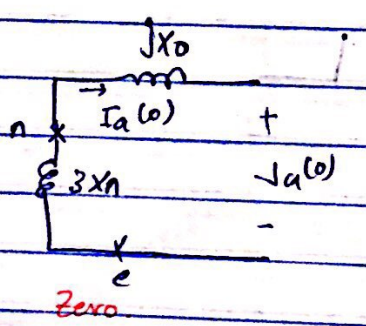 jX0
Ia(0)
+
n
3Xn
Va(0)
-
e
Zero.